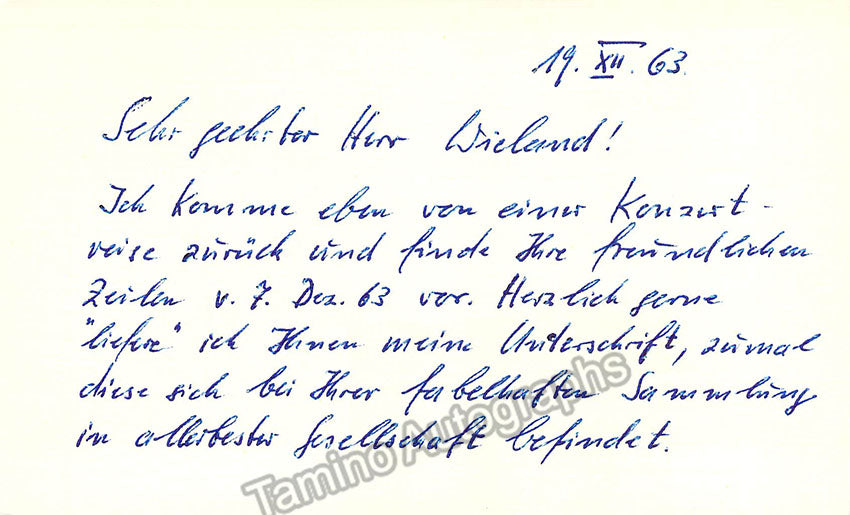 19. XII. 63.
Sehr geehrter Herr Wieland!
Ich komme eben von einer Konzert-
reise zurück und finde Ihre freundlichen
Zeilen v. 7. Dez. 63 vor. Herzlich gerne
"liefere" ich Ihnen meine Unterschrift, zumal
diese sich bei Ihrer fabelhaften Sammlung
in allerbester Gesellschaft befindet.
Tamino Autographs